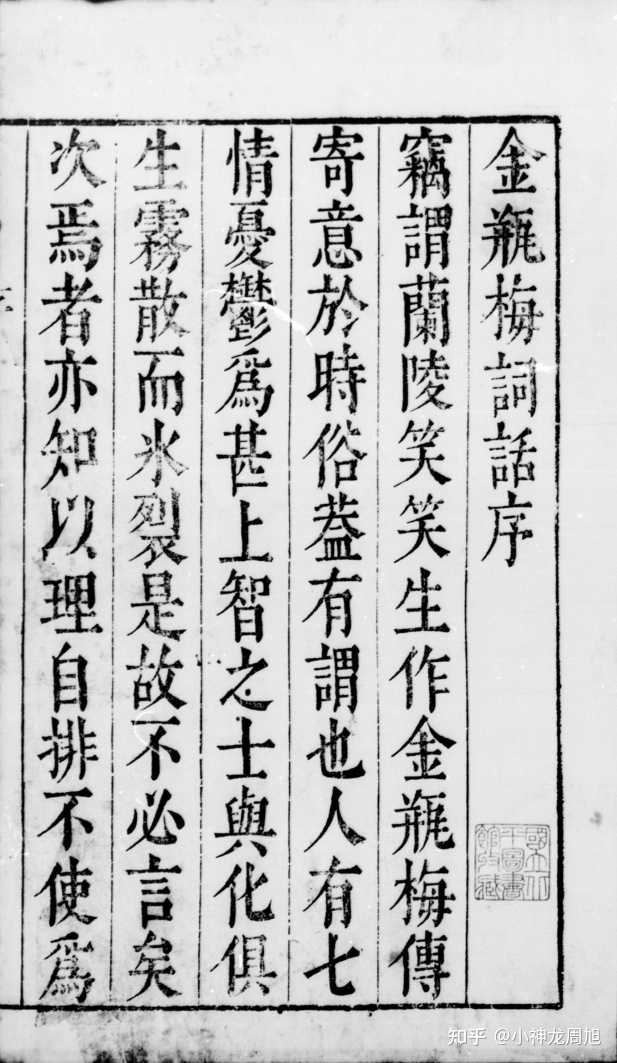 金瓶梅詞話序
竊謂蘭陵笑笑生作金瓶梅傳
寄意於時俗葢有謂也人有七
情憂鬱爲甚上智之士與化俱
生霧散而氷裂是故不必言矣
次焉者亦知以理自排不使爲
知乎 @小神龙周旭